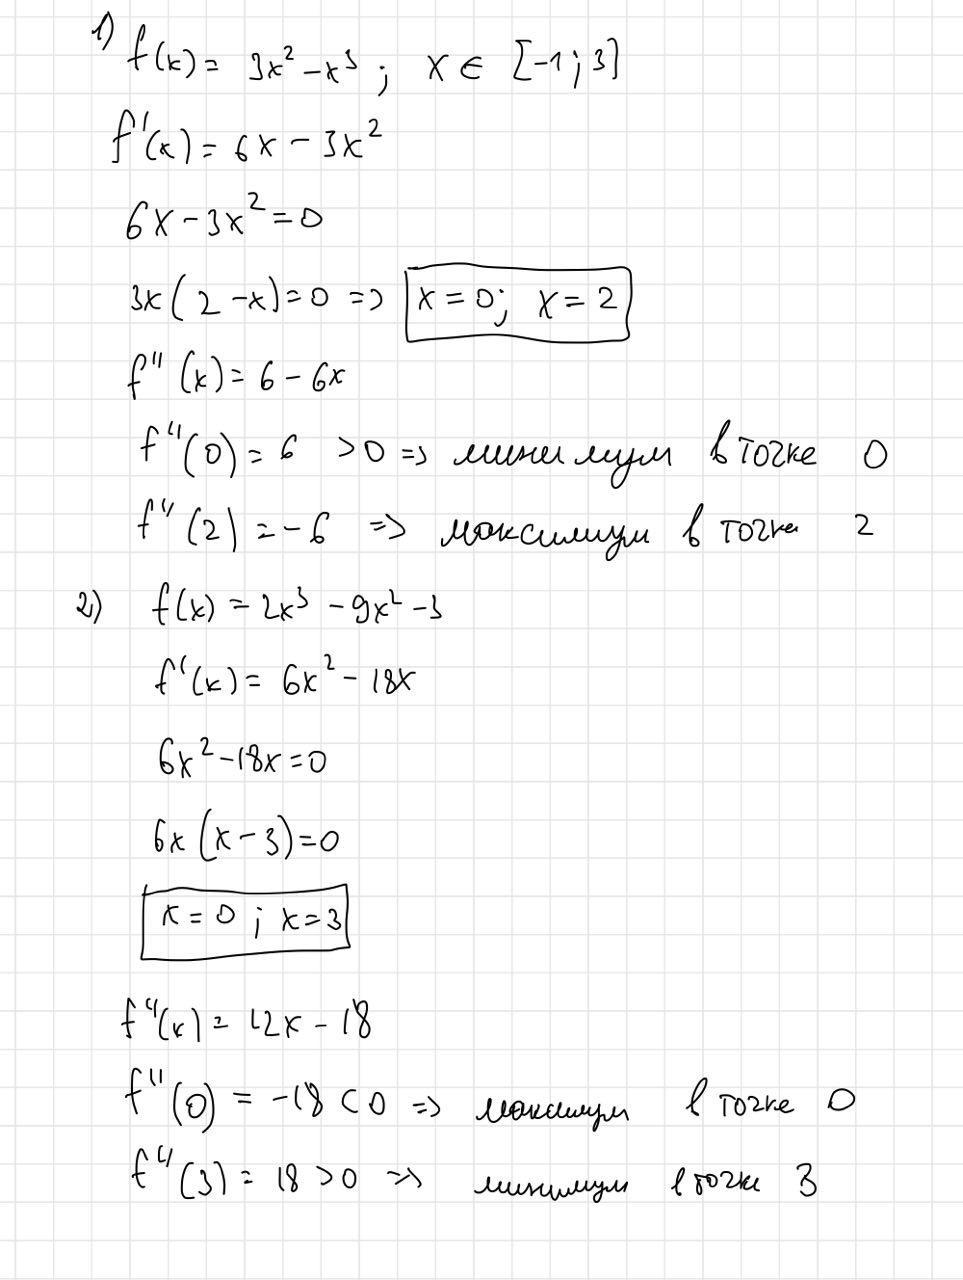 1) f(x) = 3x² - x³ ; x ∈ [-1; 3]
f'(x) = 6x - 3x²
6x - 3x² = 0
3x(2 - x) = 0 => x = 0; x = 2
f''(x) = 6 - 6x
f''(0) = 6 > 0 => минимум в точке 0
f''(2) = -6 => максимум в точке 2
2) f(x) = 2x³ - 9x² - 3
f'(x) = 6x² - 18x
6x² - 18x = 0
6x(x - 3) = 0
x = 0 ; x = 3
f''(x) = 12x - 18
f''(0) = -18 < 0 => максимум в точке 0
f''(3) = 18 > 0 => минимум в точке 3